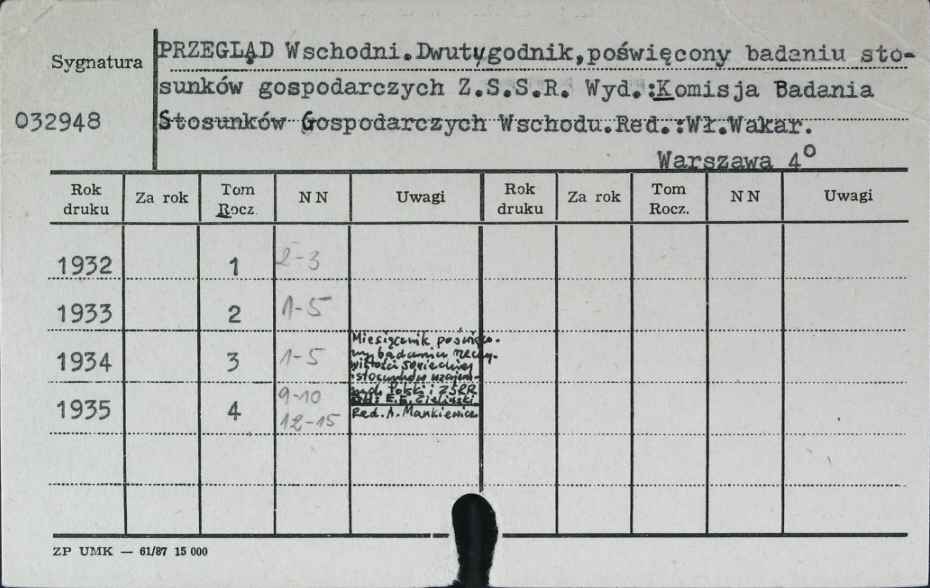 Sygnatura
PRZEGLĄD Wschodni.Dwutygodnik,poświęcony badaniu sto-
sunków gospodarczych Z.S.S.R. Wyd.:Komisja Badania
032948
Stosunków Gospodarczych Wschodu.Red.:Wł.Wakar.
Warszawa 4°
Rok druku Za rok Tom Rocz. NN Uwagi Rok druku Za rok Tom Rocz. NN Uwagi
1932 1 2-3
1933 2 1-5
1934 3 1-5
1935 4 9-10
12-15
Miesięcznik poświęco-
ny badaniu rzeczy-
wistości sowieckiej
i stosunków wzajem-
nych Polski i ZSRR
Red: E.E. Zieliński
Red. A. Mankiewicz
ZP UMK — 61/87 15 000